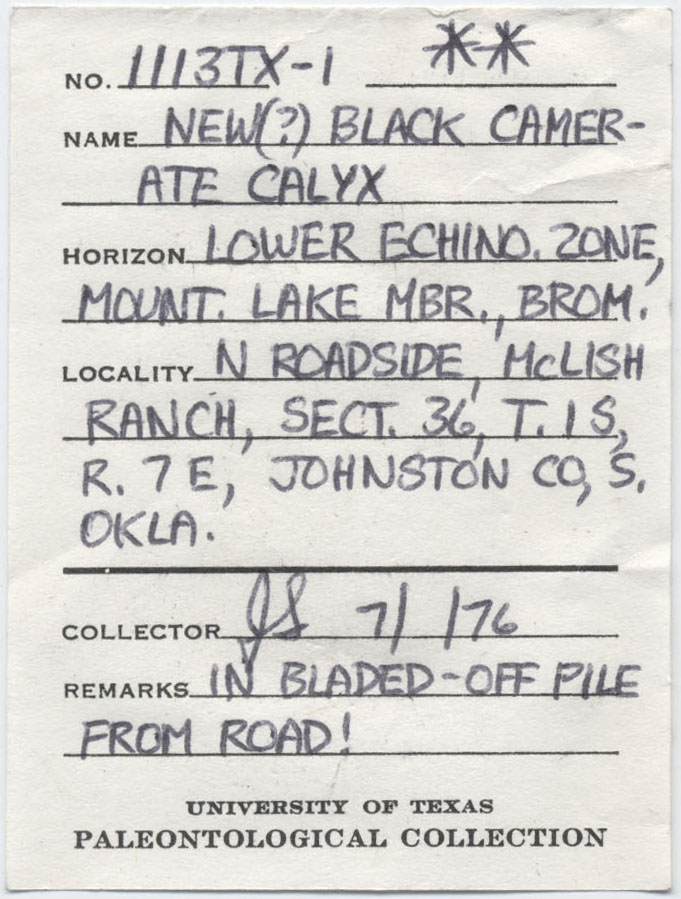 NO. 1113TX-1 **
NAME NEW(?) BLACK CAMER-
ATE CALYX
HORIZON LOWER ECHINO. ZONE,
MOUNT. LAKE MBR., BROM.
LOCALITY N ROADSIDE, McLISH
RANCH, SECT. 36, T. 1 S,
R. 7 E, JOHNSTON CO, S.
OKLA.
COLLECTOR JS 7/ /76
REMARKS IN BLADED-OFF PILE
FROM ROAD!
UNIVERSITY OF TEXAS
PALEONTOLOGICAL COLLECTION